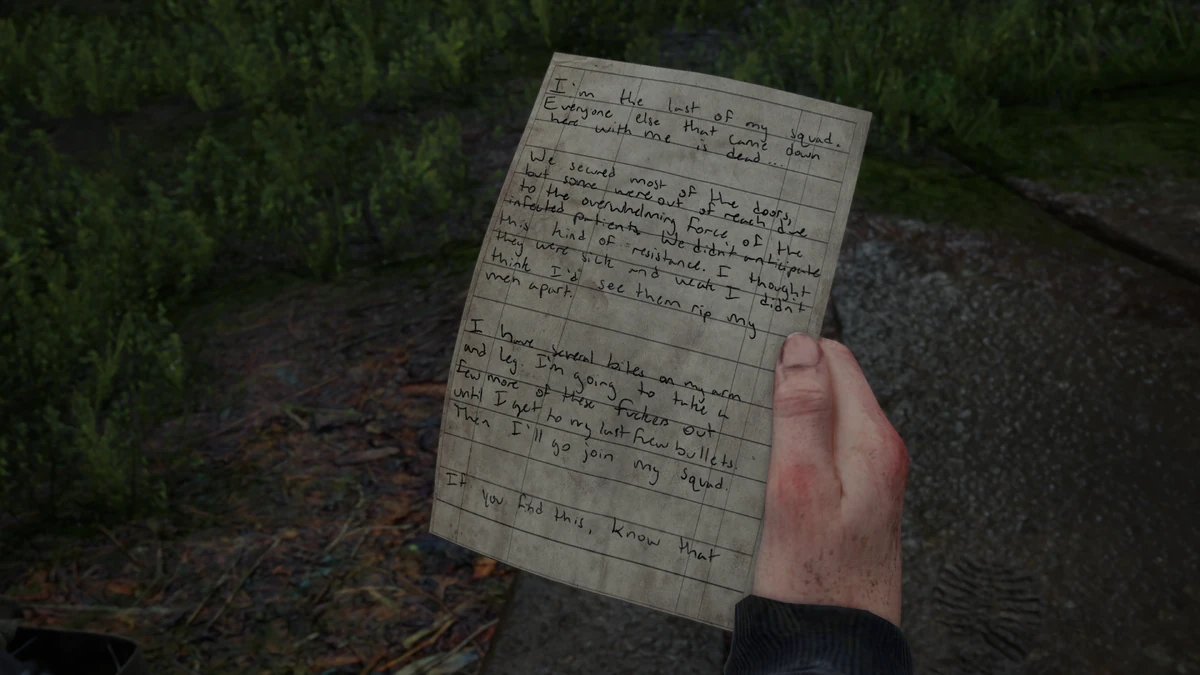 I'm the last of my squad.
Everyone else that came down
here with me is dead...
We secured most of the doors,
but some were out of reach due
to the overwhelming force of the
infected patients. We didn't anticipate
this kind of resistance. I thought
they were sick and weak I didn't
think I'd see them rip my
men apart.
I have several bites on my arm
and leg. I'm going to take a
few more of these fuckers out
until I get to my last few bullets.
Then I'll go join my squad.
If you find this, know that